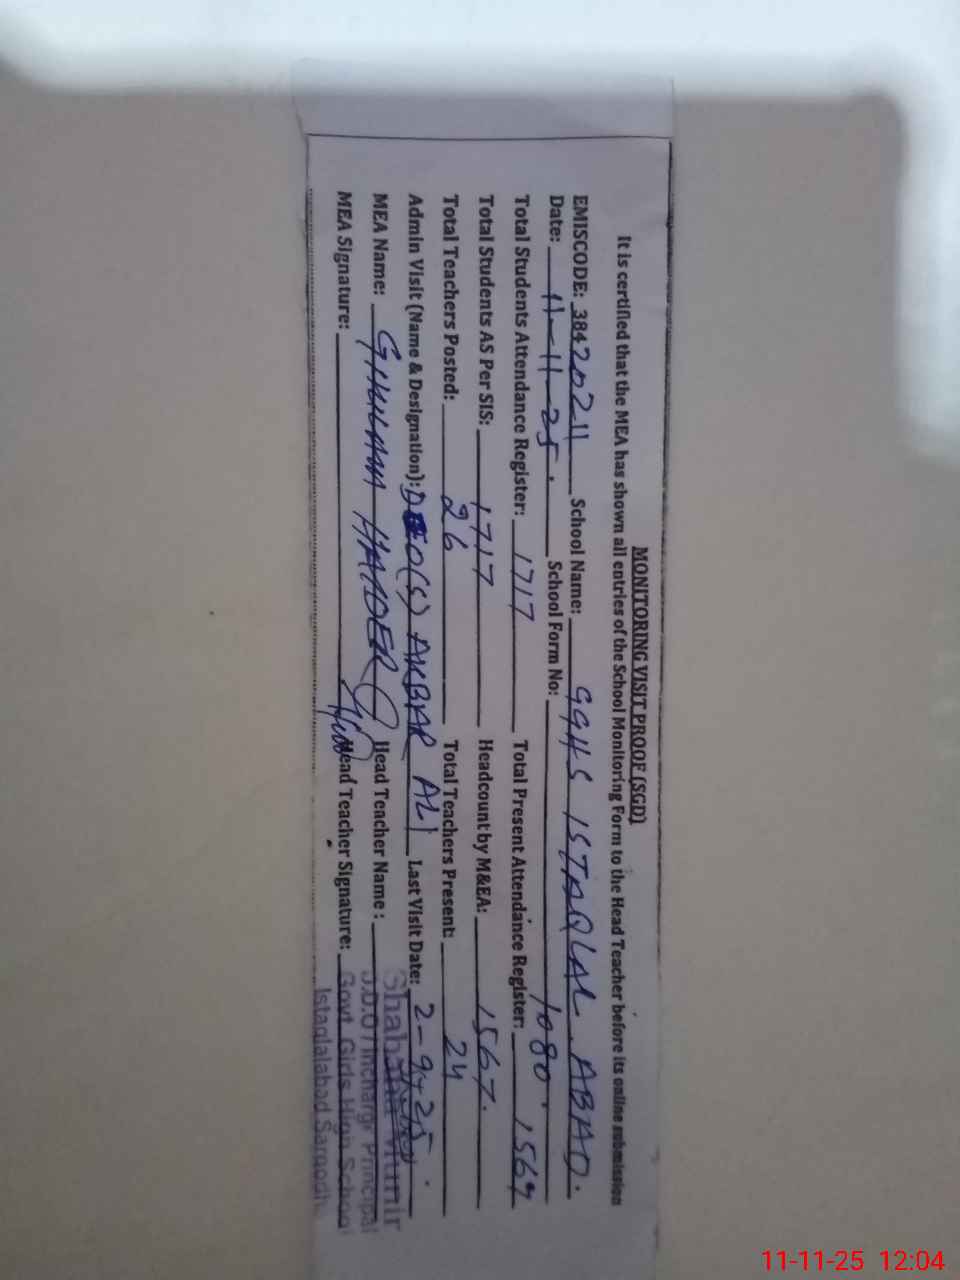 MONITORING VISIT PROOF (SGD)
It is certified that the MEA has shown all entries of the School Monitoring Form to the Head Teacher before its online submission
EMISCODE: 38420211 School Name: GGHS ISTAQLAL ABAD.
Date: 11-11-25. School Form No: 1080
Total Students Attendance Register: 1717 Total Present Attendance Register: 1567
Total Students AS Per SIS: 1717 Headcount by M&EA: 1567.
Total Teachers Posted: 26 Total Teachers Present: 24
Admin Visit (Name & Designation): DEO(S) AKBAR ALI Last Visit Date: 2-9-25.
MEA Name: GHULAM HAIDER Head Teacher Name:
MEA Signature: Head Teacher Signature:
Shabana Munir
D.D.O / Incharge Principal
Govt. Girls High School
Istaqlalabad Sargodha
11-11-25 12:04